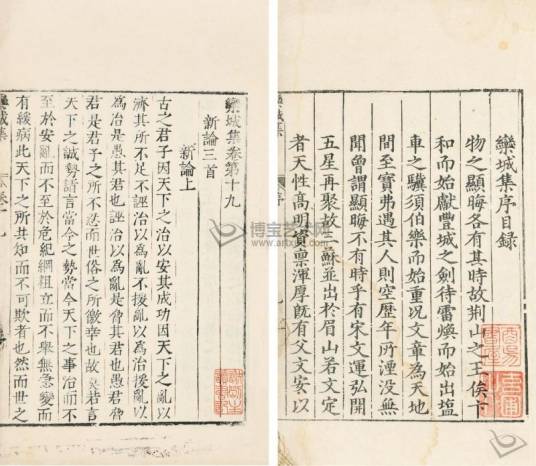 欒城集序目録
物之顯晦各有其時故荆山之玉俟卞
和而始獻豐城之劍待雷煥而始出塩
車之驥須伯樂而始重况文章為天地
間至寶弗遇其人則空歷年所湮没無
聞曾謂顯晦不有時乎有宋文運弘開
五星再聚故三蘇並出於眉山若文定
者天性高明資稟渾厚旣有父文安以
欒城集
序
欒城集卷第十九
新論三首
新論上
古之君子因天下之治以安其成功因天下之亂以
濟其所不足不誣治以為亂不援亂以為治援亂以
為治是愚其君也誣治以為亂是脅其君也愚君脅
君是君子之所不忍而世俗之所徼幸也故莫若言
天下之誠勢請言當今之勢當今天下之事治而不
至於安亂而不至於危紀綱粗立而不舉無急變而
有緩病此天下之所共知而不可欺者也然而世之
欒城集
博宝艺术网